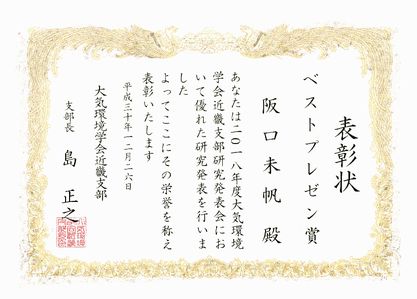 表彰状
ベストプレゼン賞
阪口未帆 殿
あなたは二〇一八年度大気環境
学会近畿支部研究発表会にお
いて優れた研究発表を行いま
した
よってここにその栄誉を称え
表彰いたします
平成三十年一二月二六日
大気環境学会近畿支部
支部長 島 正之